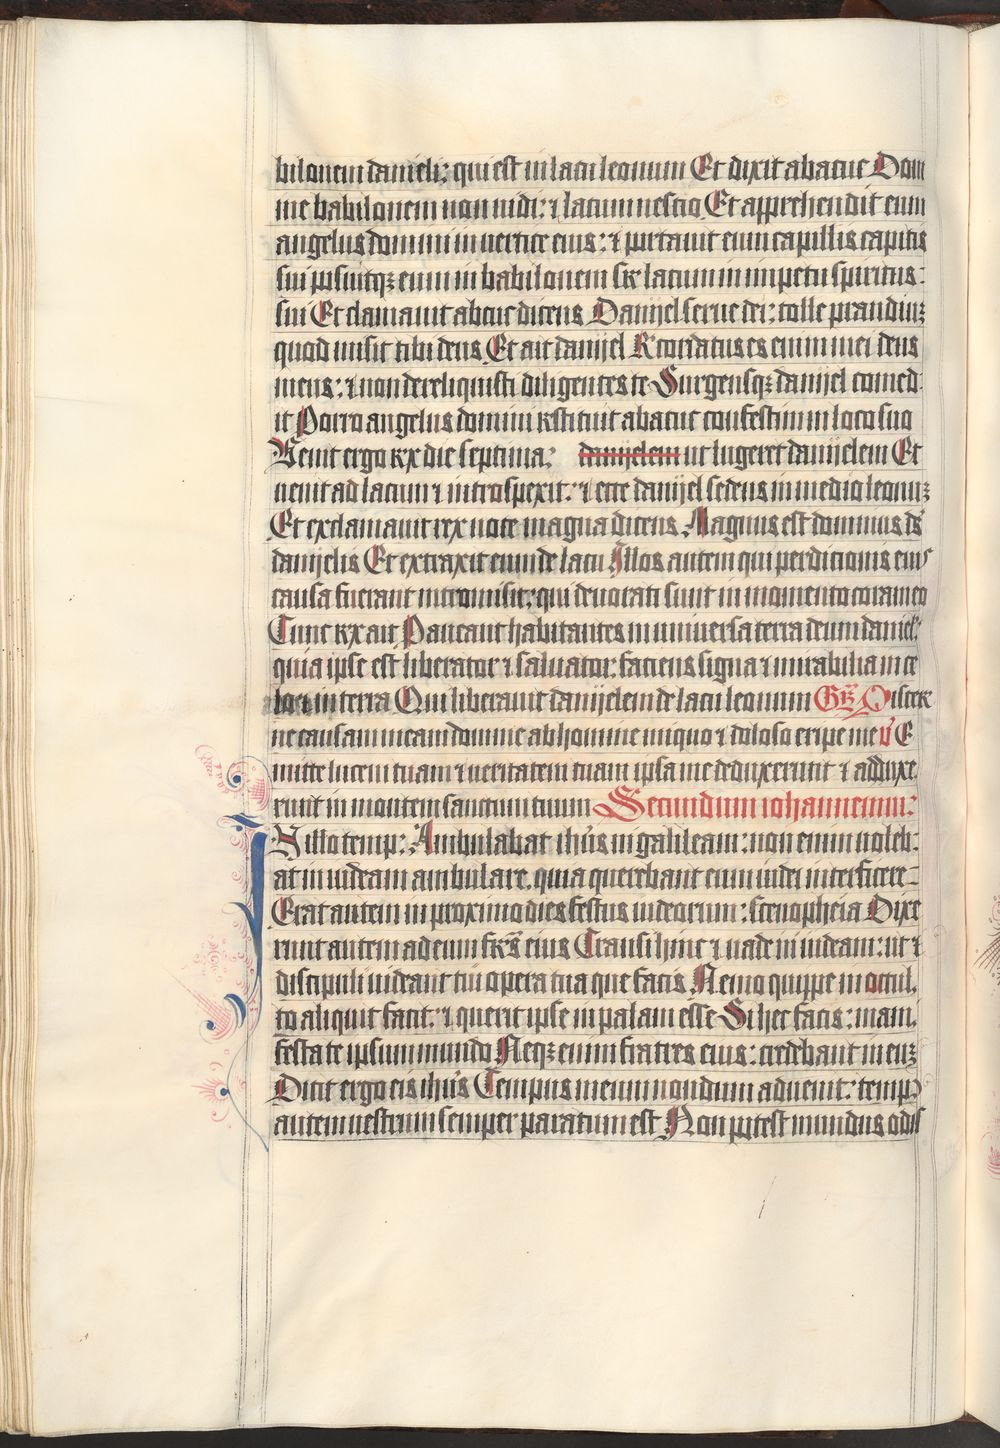 bilonem danieli: qui est in lacu leonum Et dixit abacuc Domi
ne babilonem non uidi: ⁊ lacum nescio Et apprehendit eum
angelus domini in uertice eius: ⁊ portauit eum capillis capitis
sui posuitqꝫ eum in babilonem sr lacum in impetu spiritus
sui Et clamauit abcuc dicens Danijel serue dei: tolle prandiuꝫ
quod misit tibi deus Et ait danijel Rcordatus es enim mei deus
meus: ⁊ non dereliquisti diligentes te Surgensqꝫ danijel comed
it Porro angelus domini rstituit abacuc confestim in loco suo
Venit ergo rx die septima: danijelem ut lugeret danijelem Et
uenit ad lacum ⁊ introspexit: ⁊ ecce danijel sedens in medio leonuꝫ
Et exclamauit rex uoce magna dicens Magnus est dominus ds̄
danijelis Et extraxit eum de lacu Illos autem qui perdicionis eius
causa fuerant intromisit: qui deuorati sunt in momento coram eo
Tunc rx ait Paueant habitantes in uniuersa terra deum daniel:
quia ipse est liberator ⁊ saluator: faciens signa ⁊ mirabilia in ce
lo ⁊ in terra Qui liberauit danijelem de lacu leonum Gr̄ Discer
ne causam meam domine ab homine iniquo ⁊ doloso eripe me v̄ E
mitte lucem tuam ⁊ ueritatem tuam ipsa me deduxerunt ⁊ adduxe
runt in montem sanctum tuum Secundum iohannem:
IN illo temp: Ambulabat ihūs in galileam: non enim uoleb
at in iudeam ambulare, quia querebant eum iudei interficere
Erat autem in proximo dies festus iudeorum: scenopheia Dixe
runt autem ad eum frs̄ eius Transi hinc ⁊ uade in iudeam: ut ⁊
discipuli uideant tui opera tua que facis Nemo quippe in occul
to aliquit facit: ⁊ querit ipse in palam esse Si hec facis: mani
festa te ipsum mundo Neqꝫ enim fratres eius: credebant in euꝫ
Dicit ergo eis ihūs Tempus meum nondum aduenit: temp
autem uestrum semper paratum est Non potest mundus odis